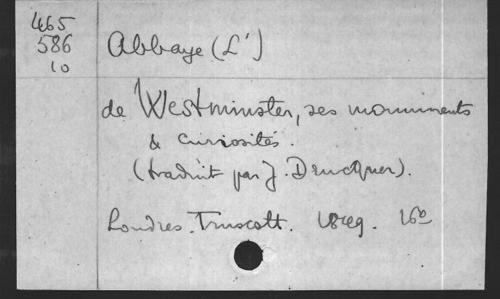 465
586
10
Abbaye (L')
de Westminster, ses monuments
& curiosités.
(traduit par J. Drucquer).
Londres. Truscott. 1849. 16º